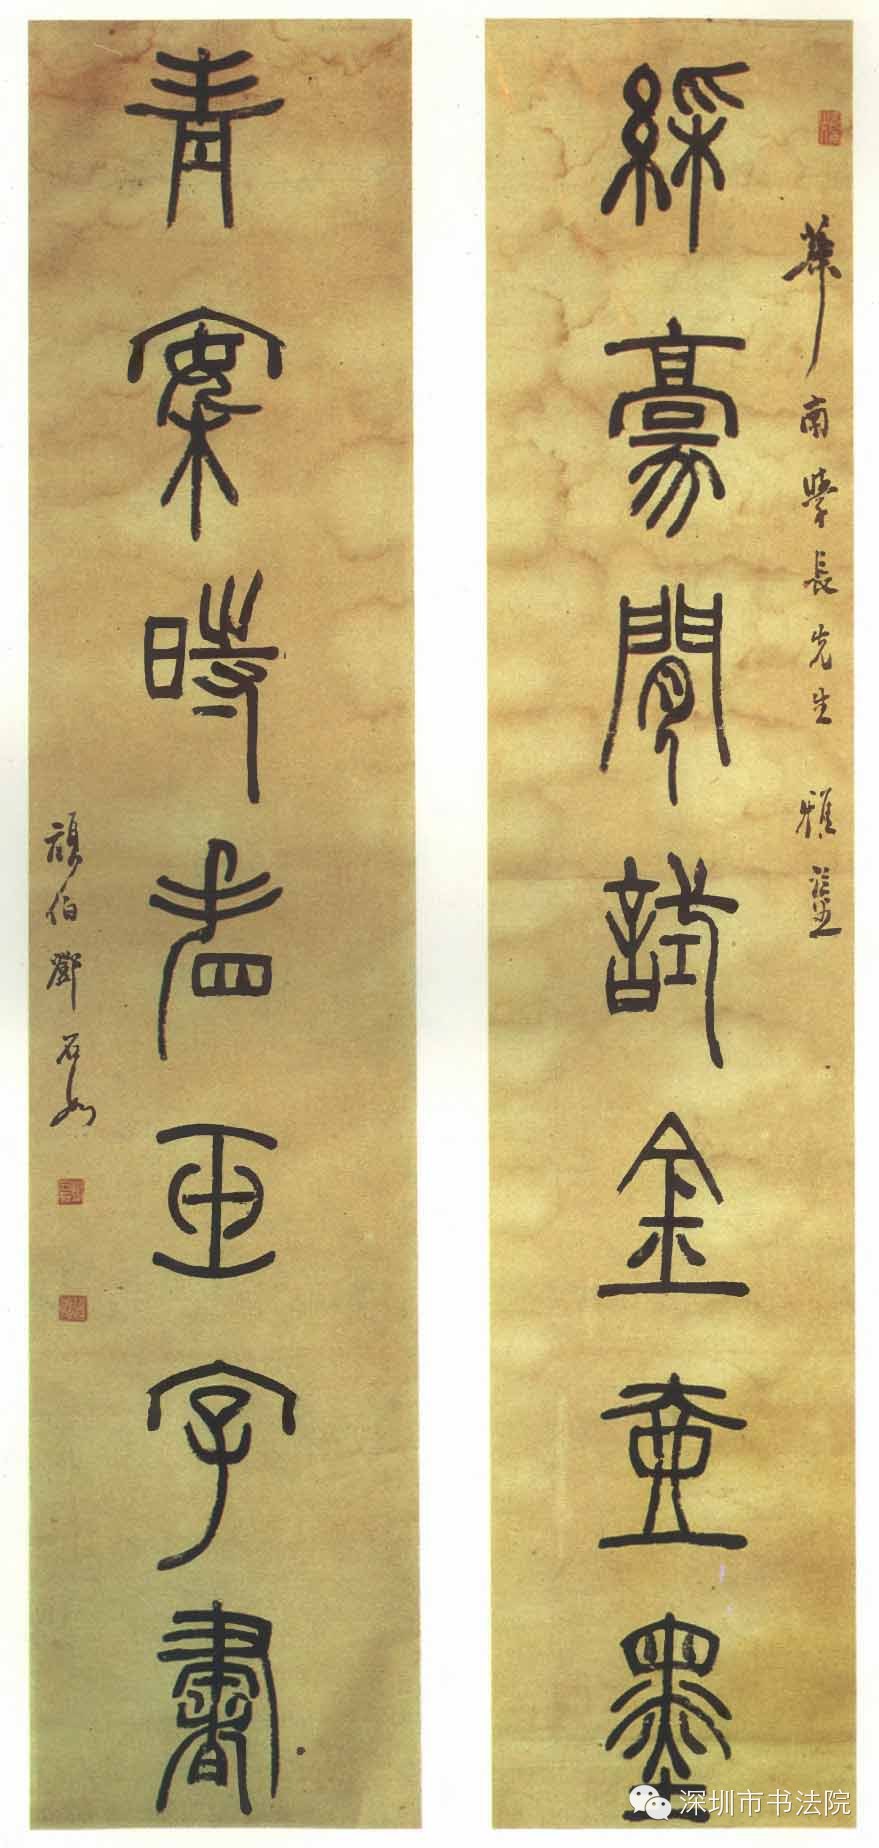 綵豪閒試金壺墨
南學長先生 雅鑒
青案時看亞字書
頑伯鄧石如
深圳市书法院